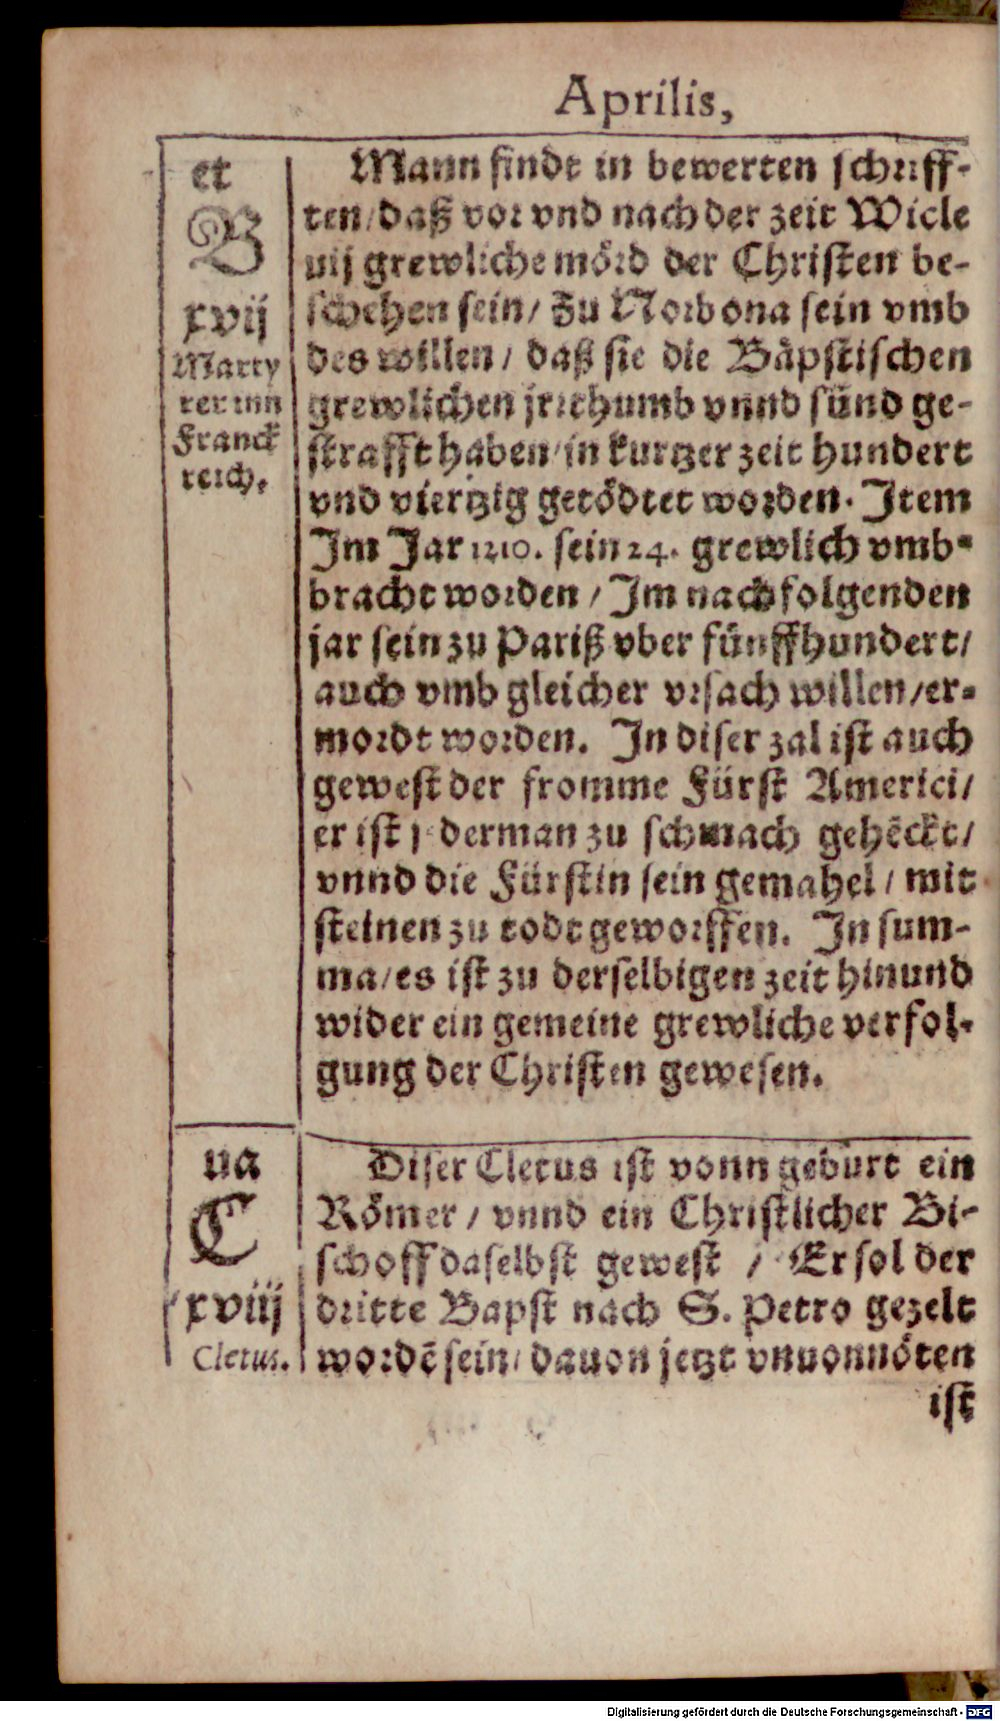 Aprilis,
et
B
xvij
Marty
rer inn
Franck
reich.
Mann findt in bewerten schriff-
ten/ daß vor vnd nach der zeit Wicle
uij grewliche mörd der Christen be-
schehen sein/ Zu Norbona sein vmb
des willen/ daß sie die Bäpstischen
grewlichen jrrthumb vnnd sünd ge-
strafft haben/ in kurtzer zeit hundert
vnd viertzig getödtet worden. Item
Im Jar 1210. sein 24. grewlich vmb-
bracht worden/ Im nachfolgenden
jar sein zu Pariß vber fünffhundert/
auch vmb gleicher vrsach willen/ er-
mordt worden. In diser zal ist auch
gewest der fromme Fürst Americi/
er ist jederman zu schmach gehēckt/
vnnd die Fürstin sein gemahel/ mit
steinen zu todt geworffen. In sum-
ma/ es ist zu derselbigen zeit hinund
wider ein gemeine grewliche verfol-
gung der Christen gewesen.
ua
C
xviij
Cletus.
Diser Cletus ist vonn geburt ein
Römer/ vnnd ein Christlicher Bi-
schoff daselbst gewest / Er sol der
dritte Bapst nach S. Petro gezelt
wordē sein/ dauon jetzt vnuonnöten
ist
Digitalisierung gefördert durch die Deutsche Forschungsgemeinschaft - DFG